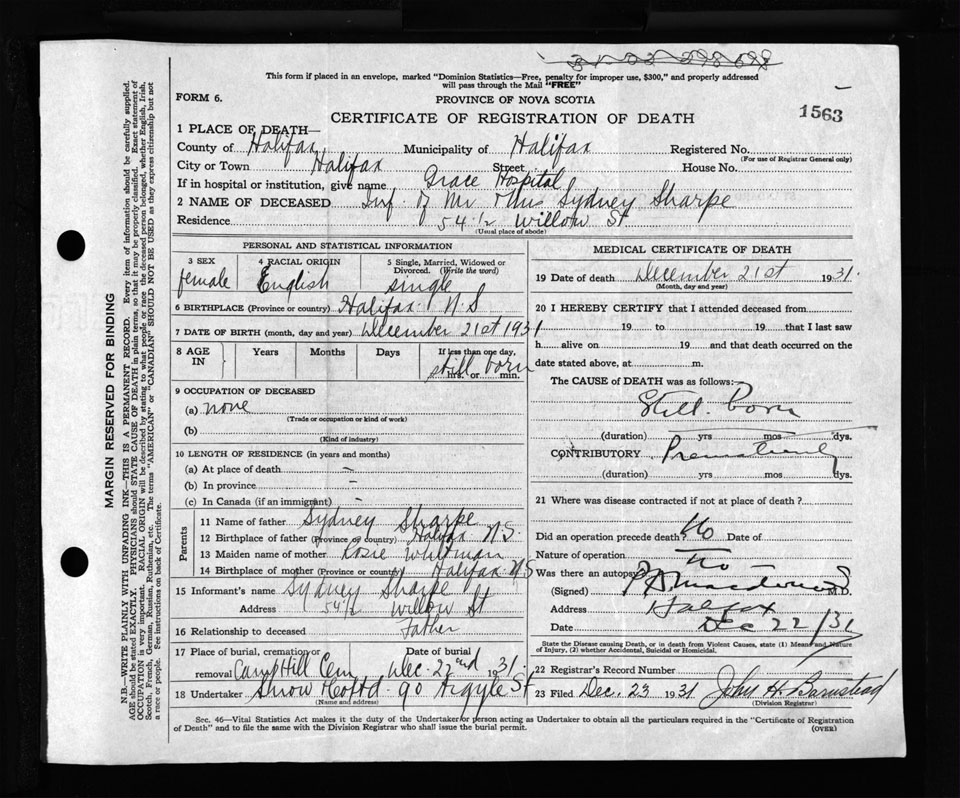 This form if placed in an envelope, marked "Dominion Statistics—Free, penalty for improper use, $300," and properly addressed
will pass through the Mail "FREE"
FORM 6.
PROVINCE OF NOVA SCOTIA
1563
CERTIFICATE OF REGISTRATION OF DEATH
1 PLACE OF DEATH—
County of Halifax Municipality of Halifax Registered No.
(For use of Registrar General only)
City or Town Halifax Street House No.
If in hospital or institution, give name Grace Hospital
2 NAME OF DECEASED Inf. of Mr & Mrs Sydney Sharpe
Residence 54 1/2 Willow St
(Usual place of abode)
PERSONAL AND STATISTICAL INFORMATION
3 SEX
female
4 RACIAL ORIGIN
English
5 Single, Married, Widowed or
Divorced. (Write the word)
single
6 BIRTHPLACE (Province or country) Halifax N.S
7 DATE OF BIRTH (month, day and year) December 21st 1931
8 AGE
IN
Years
Months
Days
If less than one day,
still born
hrs. or min.
9 OCCUPATION OF DECEASED
(a) none
(Trade or occupation or kind of work)
(b)
(Kind of industry)
10 LENGTH OF RESIDENCE (in years and months)
(a) At place of death –
(b) In province –
(c) In Canada (if an immigrant) –
Parents
11 Name of father Sydney Sharpe
12 Birthplace of father (Province or country) Halifax N.S.
13 Maiden name of mother Rosie Whitman
14 Birthplace of mother (Province or country) Halifax N.S
15 Informant's name Sydney Sharpe
Address 54 1/2 Willow St
16 Relationship to deceased Father
17 Place of burial, cremation or
Date of burial
removal Camp Hill Cem Dec. 22nd 1931.
18 Undertaker Snow Co Ltd. 90 Argyle St
(Name and address)
MEDICAL CERTIFICATE OF DEATH
19 Date of death December 21st 1931.
(Month, day and year)
20 I HEREBY CERTIFY that I attended deceased from
19 to 19 that I last saw
h alive on 19 and that death occurred on the
date stated above, at m.
The CAUSE OF DEATH was as follows:
Still. Born
(duration) yrs mos dys.
CONTRIBUTORY Prematurity
(duration) yrs mos dys.
21 Where was disease contracted if not at place of death?
Did an operation precede death? No Date of
Nature of operation
Was there an autopsy? No
(Signed) M.D.
Address Halifax
Date Dec 22/31
State the Disease causing Death, or in death from Violent Causes, state (1) Means and Nature
of Injury, (2) whether Accidental, Suicidal or Homicidal.
22 Registrar's Record Number
23 Filed Dec. 23 1931 John H Barnstead
(Division Registrar)
Sec. 46—Vital Statistics Act makes it the duty of the Undertaker/or person acting as Undertaker to obtain all the particulars required in the "Certificate of Registration
of Death" and to file the same with the Division Registrar who shall issue the burial permit.
(OVER)
MARGIN RESERVED FOR BINDING
N.B.—WRITE PLAINLY WITH UNFADING INK—THIS IS A PERMANENT RECORD. Every item of information should be carefully supplied.
AGE should be stated EXACTLY. PHYSICIANS should STATE CAUSE OF DEATH in plain terms, so that it may be properly classified. Exact statement of
OCCUPATION is very important. RACIAL ORIGIN will be described by stating to what people or race the deceased person belonged, whether English, Irish,
Scotch, French, German, Russian, Ruthenian, etc. The terms "AMERICAN" or "CANADIAN" SHOULD NOT BE USED as they express citizenship but not
a race or people. See instructions on back of Certificate.